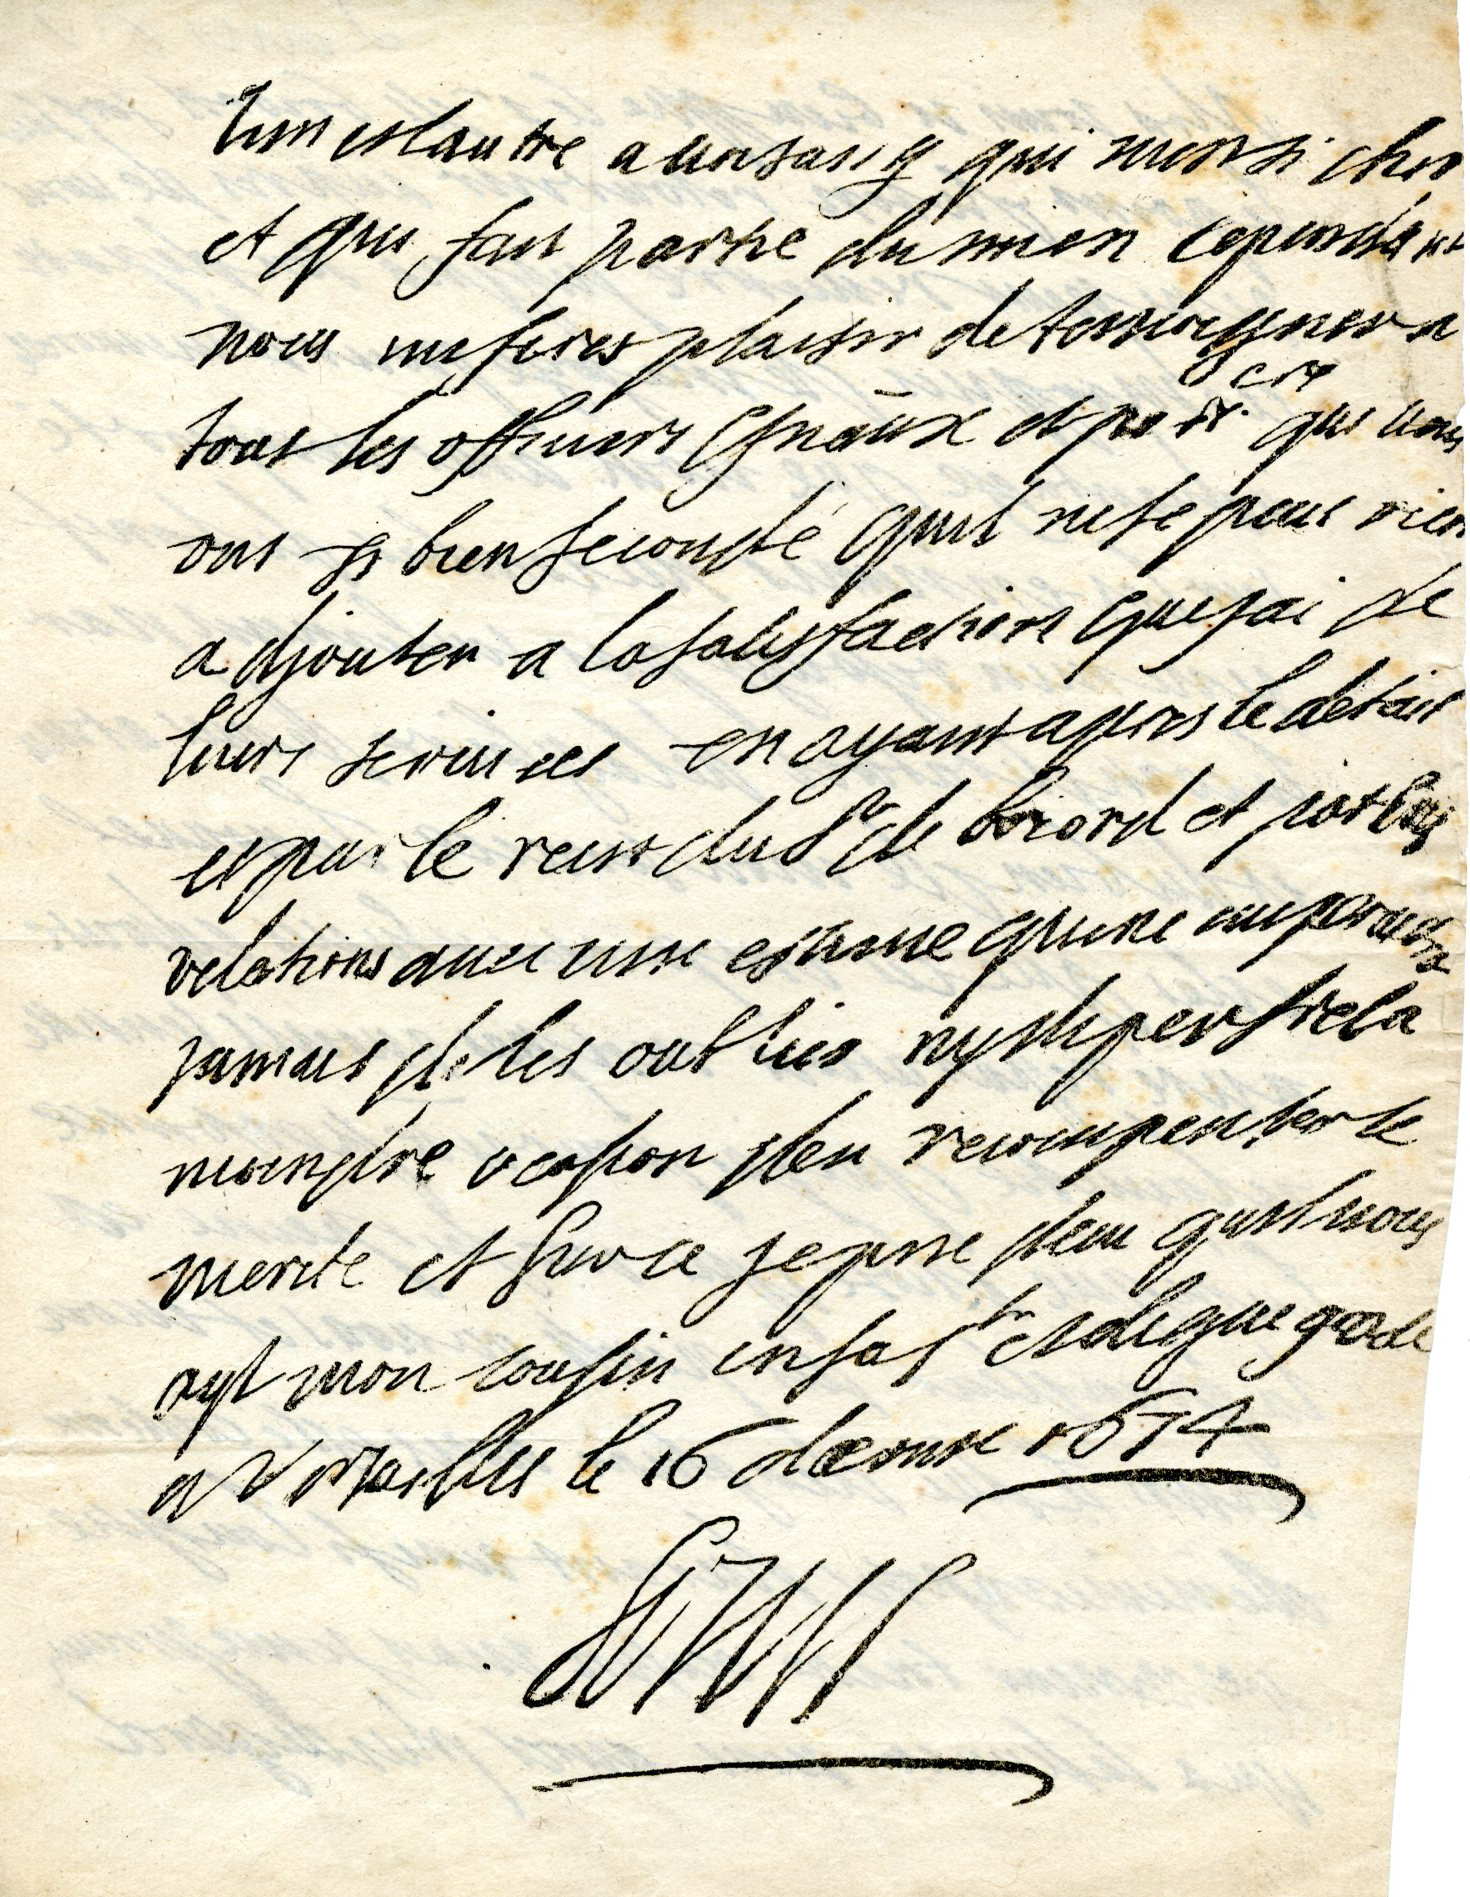 lun et lautre a un sang qui mest si cher
et qui fait partie du mien cependant
vous me feres plaisir de tesmoegner a
tous les officiers gnāux et par ers que vous
ont si bien secondé quil ne se peut rien
adjouter a la satisfaction que jai de
leurs services en ayant apris le detail
et par le recit du Sr de briord et par les
relations avec une estime qui ne me permettra
jamais de les oublier ny de perdre la
moindre ocasion den recompenser le
merite et sur ce je prie dieu quil vous
ayt mon cousin en sa ste et digne garde
a Versailles le 16 decembre 1674
Louis